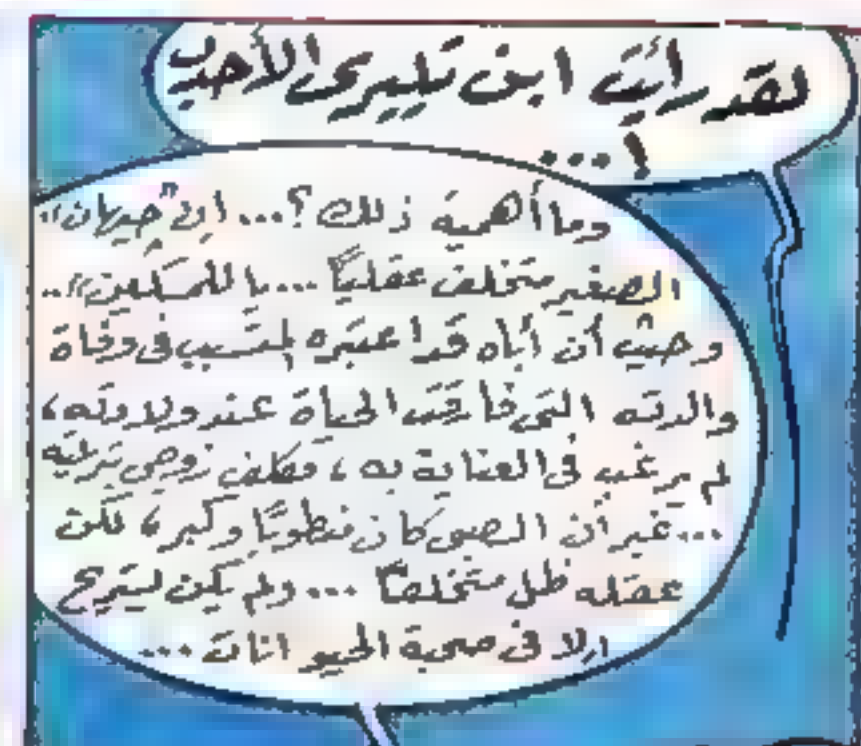 لقد رأيت ابن تليري الأحدب
...!
وما أهمية ذلك؟... إن "جيهان"
الصغير متخلف عقلياً... يا للمسكين!..
وحيث أن أباه قد اعتبره المتسبب فى وفاة
والدته التى فارقت الحياة عند ولادته،
لم يرغب فى العناية به، فكلف زوجى بتربيته
...غير أن الصبى كان منطوياً وكبر، لكن
عقله ظل متخلفاً... ولم يكن ليستريح
إلا فى صحبة الحيوانات...